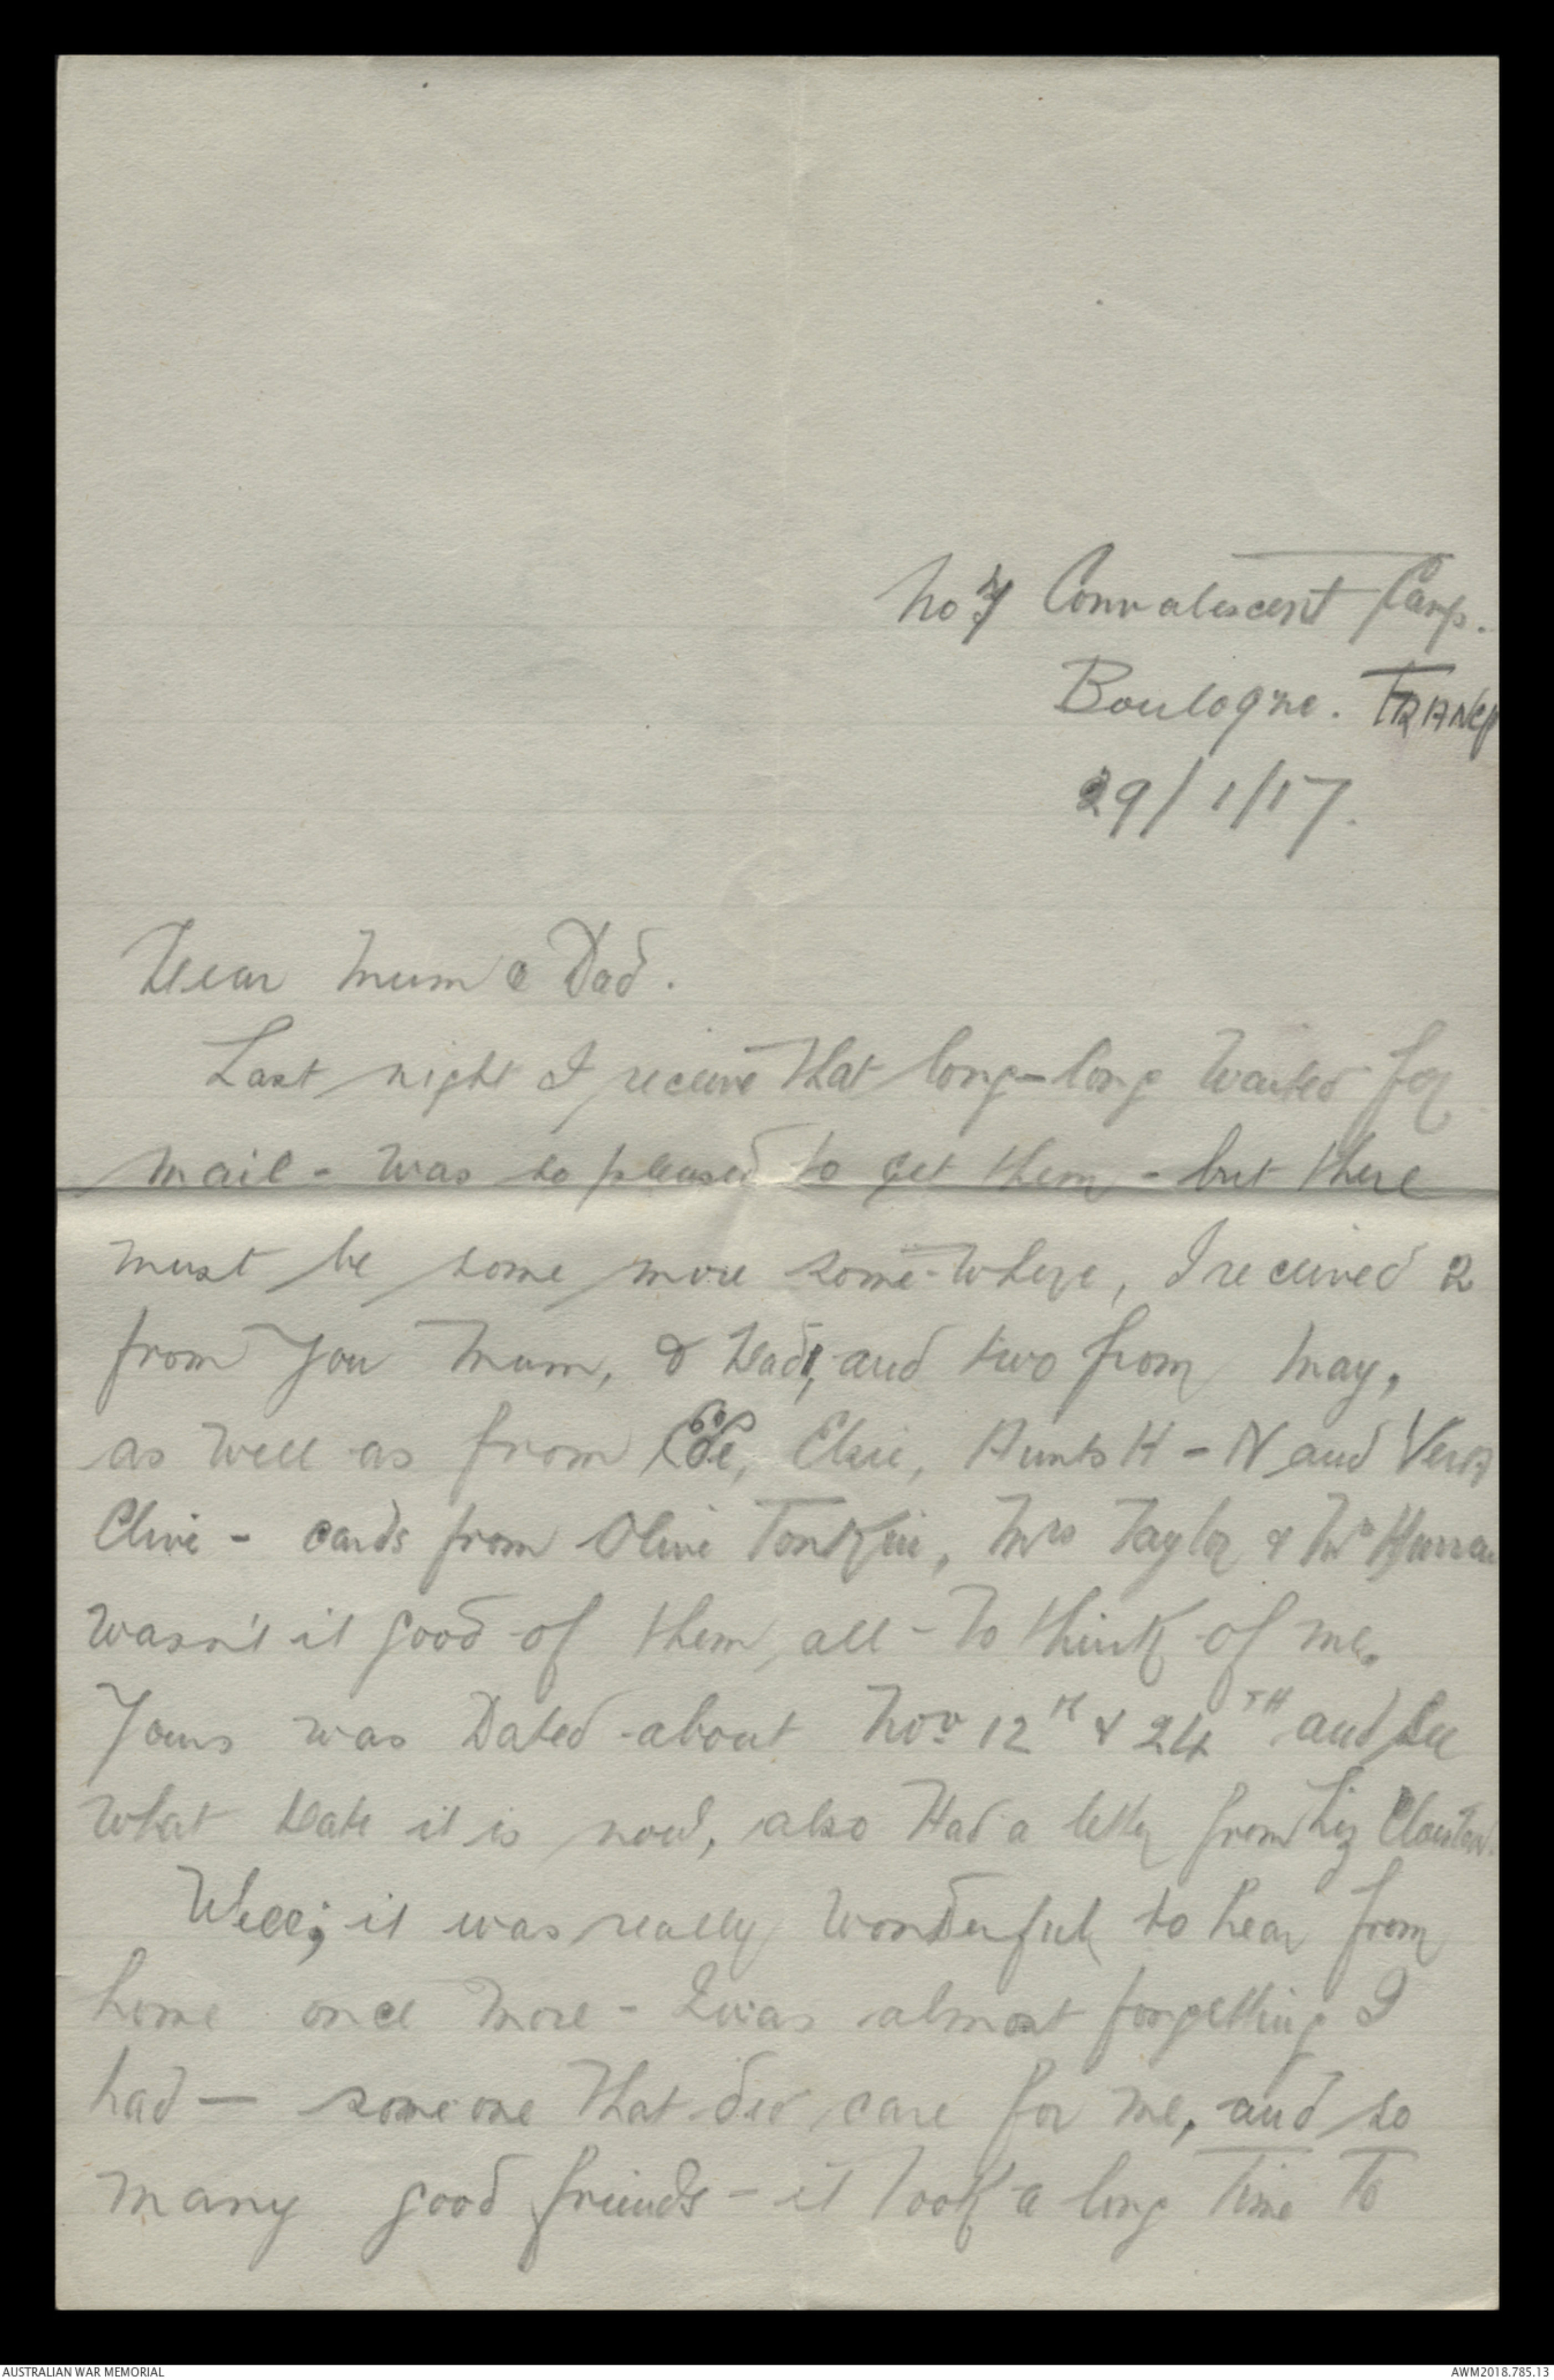 No 7 Convalescent Camp.
Boulogne. FRANCE
29/1/17.
Dear Mum & Dad.
Last night I receive that long-long waited for
mail - was so pleased to get them - but there
must be some more some-where, I received 2
from you Mum, & Dad, and two from May,
as well as from Elsie, Aunts H - N and Vera
Clive - cards from Olive Tonkin, Mrs Taylor & Mr
wasn't it good of them, all - to think of me.
Yours was Dated about Nov 12th & 24TH and see
what date it is now, also Had a letter from Liz
Well; it was really wonderful to hear from
home once more - I was almost forgetting I
had — someone that did care for me, and so
many good friends - it took a long time to
AUSTRALIAN WAR MEMORIAL
AWM2018.785.13